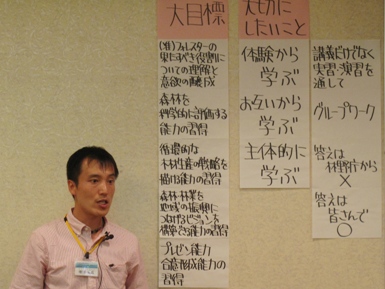 大目標
(准)フォレスターの
果たすべき役割に
ついての理解と
意欲の醸成
森林を
科学的に評価する
能力の習得
循環的な
木材生産の戦略を
描ける能力の習得
森林・林業を
地域の振興に
つなげるビジョンを
構築する能力の習得
プレゼン能力
合意形成能力の
習得
大切に
したいこと
体験から
学ぶ
お互いから
学ぶ
主体的に
学ぶ
講義だけでなく
実習・演習を
通して
グループワーク
答えは
林野庁から
×
答えは
皆さんで
○